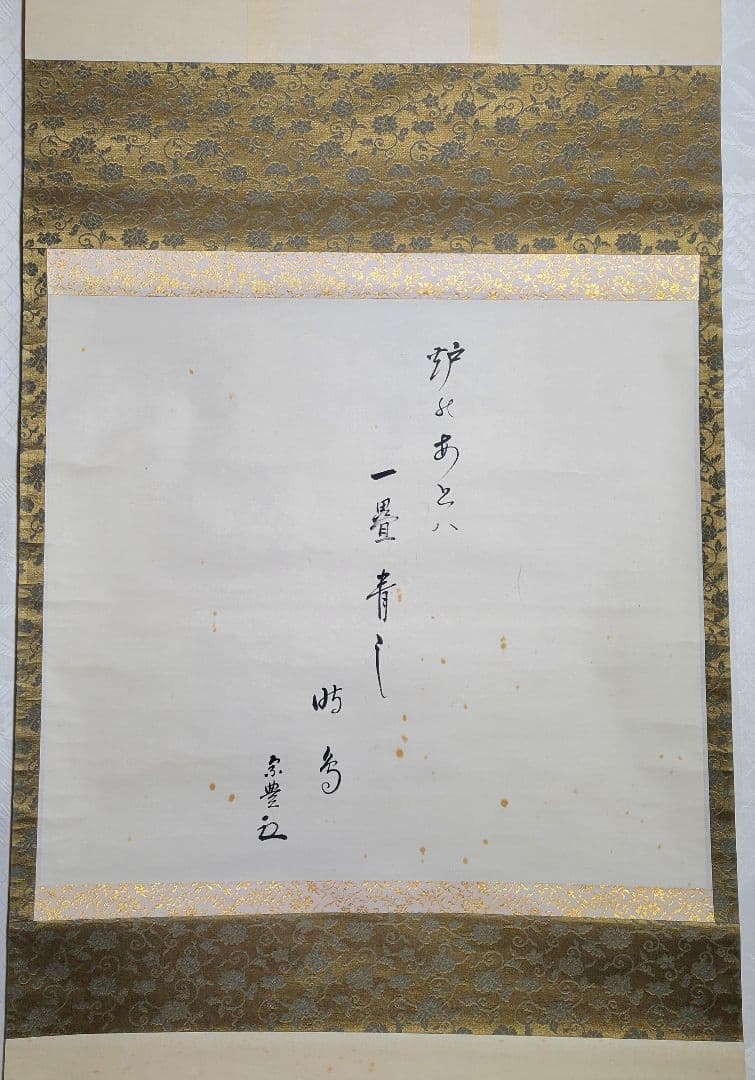 炉のあとハ
一畳青し
時鳥
宗豊